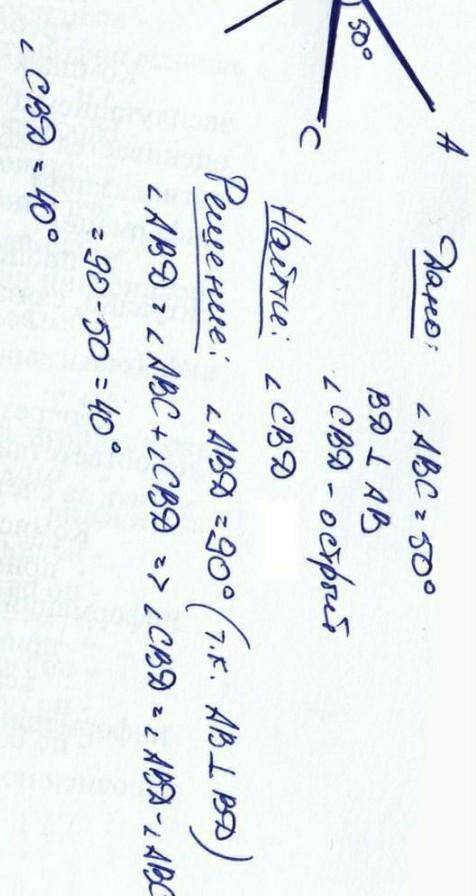 50°
A
C
Дано: ∠ABC = 50°
BD ⊥ AB
∠CBD - острый
Найти: ∠CBD
Решение: ∠ABD = 90° (т.к. AB ⊥ BD)
∠ABD = ∠ABC + ∠CBD => ∠CBD = ∠ABD - ∠ABC
= 90 - 50 = 40°
∠CBD = 40°